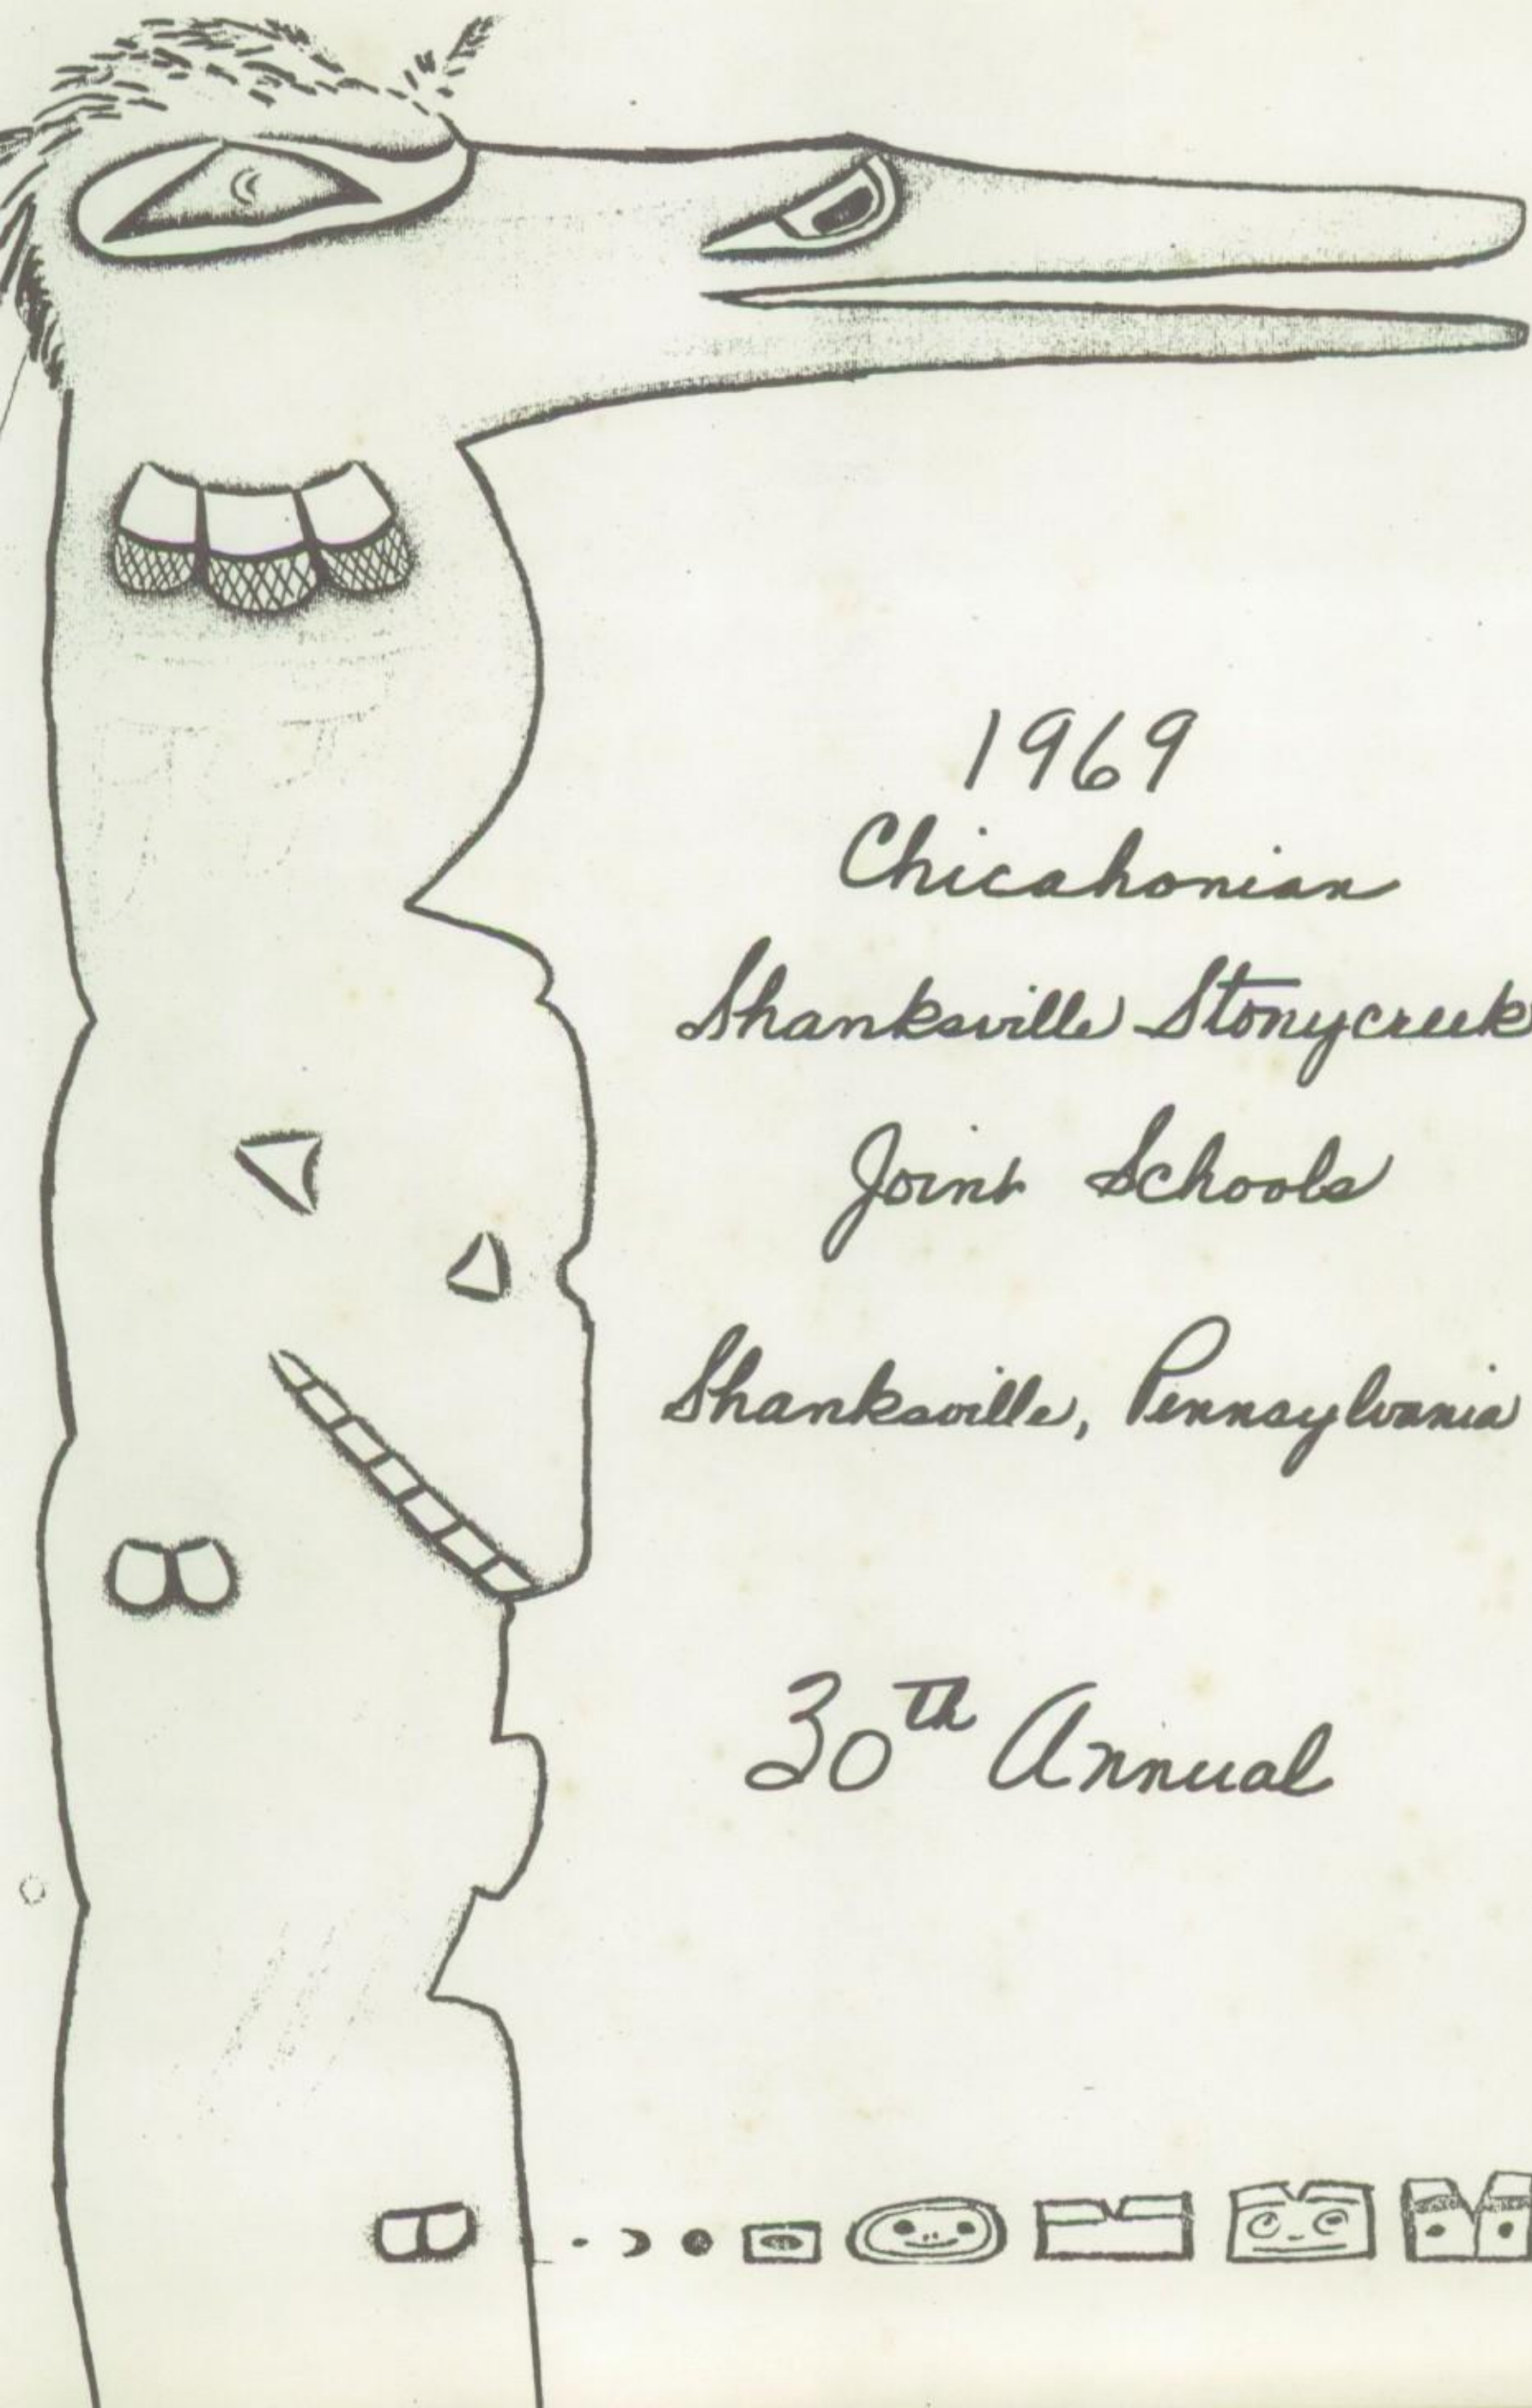 1969
Chicahonian
Shanksville Stonycreek
Joint Schools
Shanksville, Pennsylvania
30th Annual